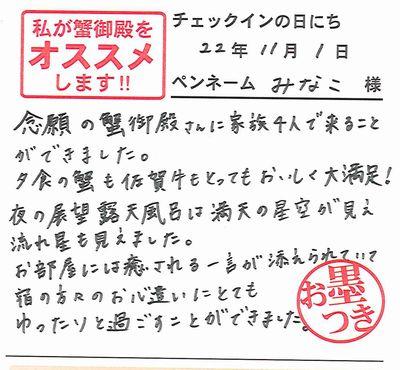 私が蟹御殿を
オススメ
します!!
チェックインの日にち
22年 11月 1日
ペンネーム みなこ 様
念願の蟹御殿さんに家族4人で来ること
ができました。
夕食の蟹も佐賀牛もとってもおいしく大満足!
夜の展望露天風呂は満天の星空が見え
流れ星も見えました。
お部屋には癒される一言が添えられていて
宿の方々のお心遣いにとても
ゆったりと過ごすことができました。
お墨つき